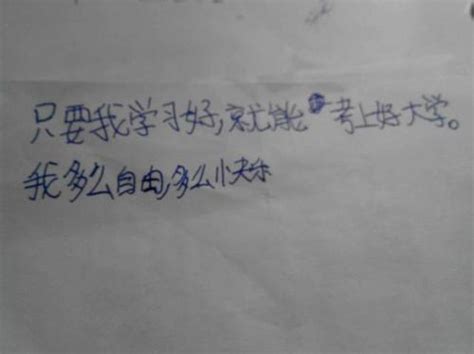 只要我学习好,就能考上好大学。
我多么自由,多么快乐